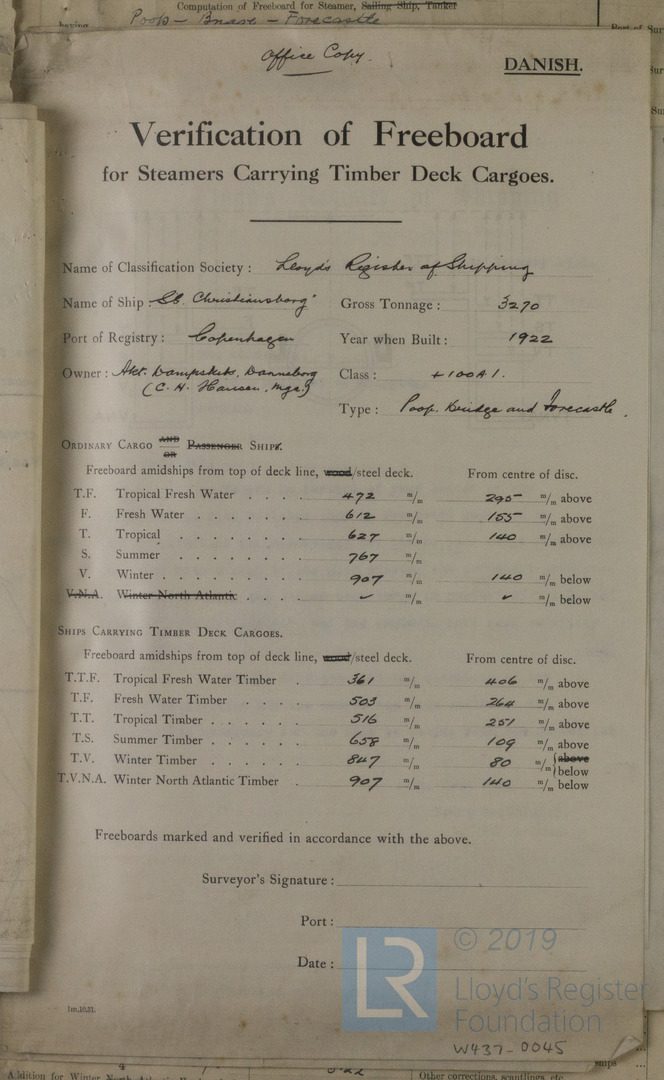 Computation of Freeboard for Steamer, Sailing Ship, Tanker
having Poop – – Forecastle
Port of Sur
Office Copy.
DANISH.
Verification of Freeboard
for Steamers Carrying Timber Deck Cargoes.
Name of Classification Society : Lloyd's Register of Shipping
Name of Ship : "St. Christiansborg" Gross Tonnage : 3270
Port of Registry : Copenhagen Year when Built : 1922
Owner : Akt. Dampskibs. Danneborg Class : +100A1.
(C. H. Hansen, Mgr)
Type : Poop, Bridge and Forecastle.
ORDINARY CARGO AND OR PASSENGER SHIPS.
Freeboard amidships from top of deck line, wood/steel deck. From centre of disc.
T.F. Tropical Fresh Water . . . . 472 m/m 295 m/m above
F. Fresh Water . . . . . . . 612 m/m 155 m/m above
T. Tropical . . . . . . . . 627 m/m 140 m/m above
S. Summer . . . . . . . . 767 m/m
V. Winter . . . . . . . . . 907 m/m 140 m/m below
V.N.A. Winter North Atlantic . . . . ✓ m/m ✓ m/m below
SHIPS CARRYING TIMBER DECK CARGOES.
Freeboard amidships from top of deck line, wood/steel deck. From centre of disc.
T.T.F. Tropical Fresh Water Timber . 361 m/m 406 m/m above
T.F. Fresh Water Timber . . . . 503 m/m 264 m/m above
T.T. Tropical Timber . . . . . . 516 m/m 251 m/m above
T.S. Summer Timber . . . . . . 658 m/m 109 m/m above
T.V. Winter Timber . . . . . . 847 m/m 80 m/m above
below
T.V.N.A. Winter North Atlantic Timber . 907 m/m 140 m/m below
Freeboards marked and verified in accordance with the above.
Surveyor's Signature :
Port :
Date :
LR © 2019
Lloyd's Register
Foundation
1m,10,31.
W437-0045
Addition for Winter North
Other corrections, scantlings, etc.